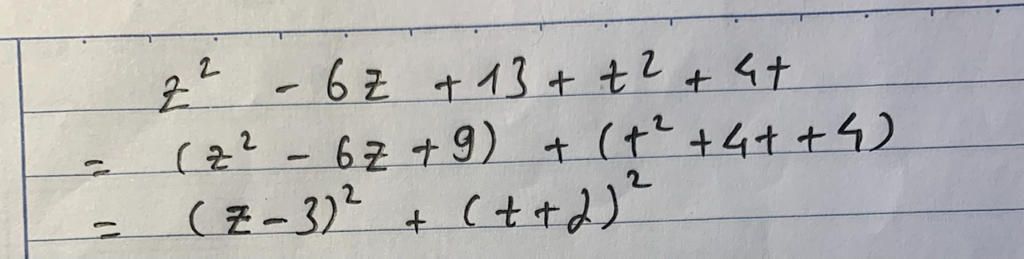 z² - 6z + 13 + t² + 4t
= (z² - 6z + 9) + (t² + 4t + 4)
= (z - 3)² + (t + 2)²